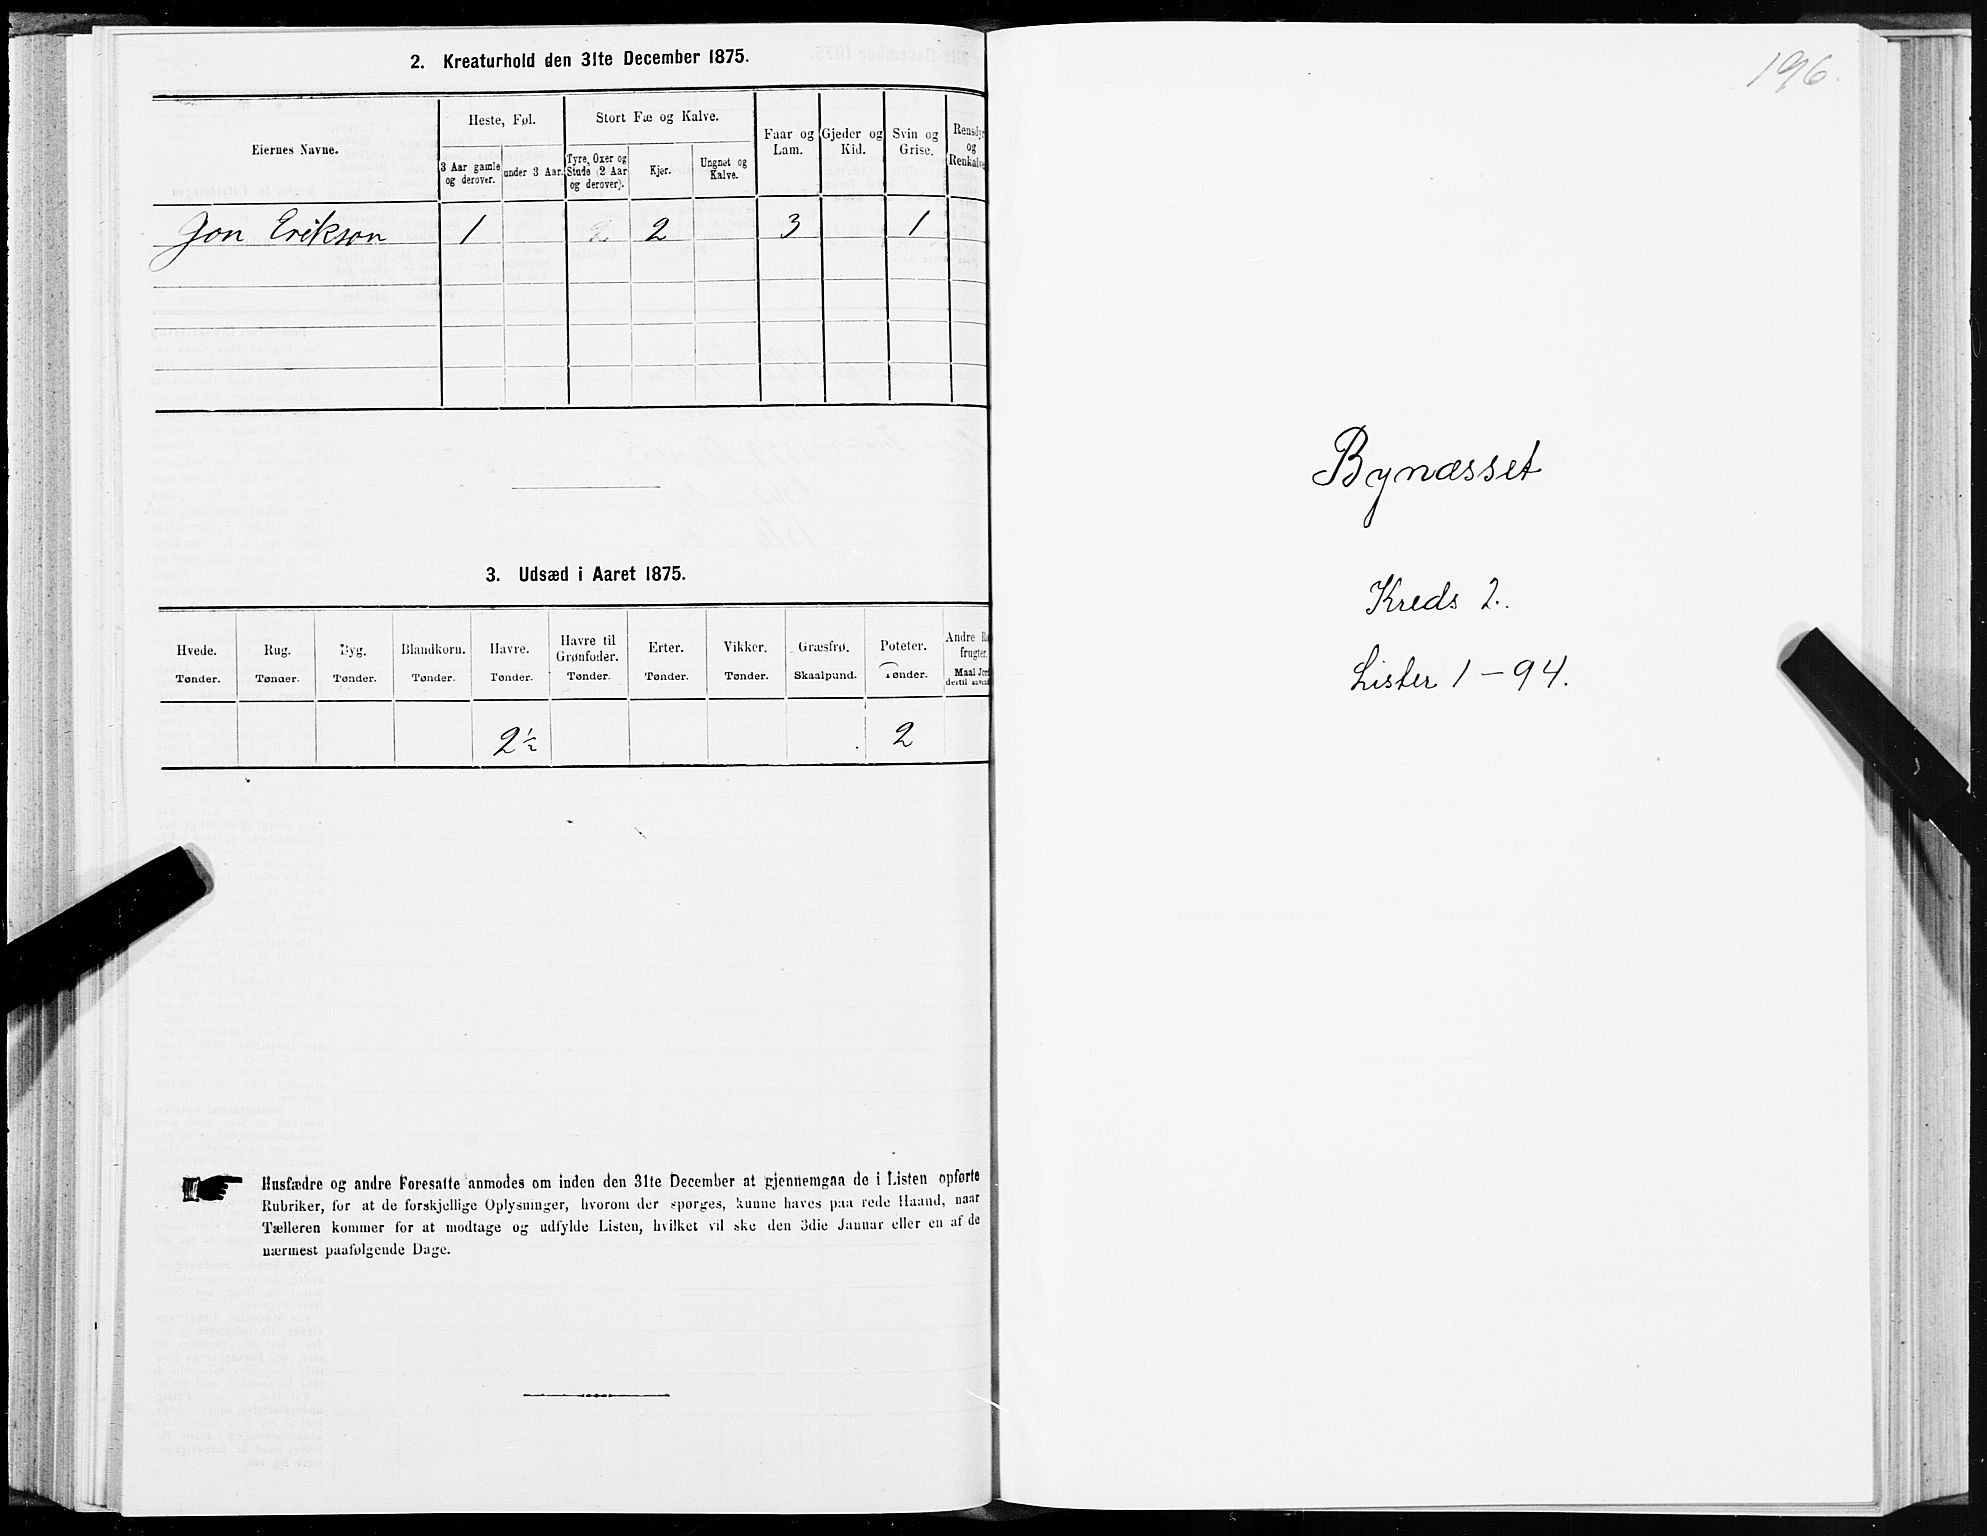 2. Kreaturhold den 31te December 1875.
Eiernes Navne.
Heste, Føl.
3 Aar gamle og derover.
under 3 Aar.
Stort Fæ og Kalve.
Tyre, Oxer og Stude (2 Aar og derover).
Kjør.
Ungnøt og Kalve.
Faar og Lam.
Gjeder og Kid.
Svin og Grise.
Rensdyr og Renkalve
Jon Erikson 1 2 3 1
3. Udsæd i Aaret 1875.
Hvede. Rug. Byg. Blandkorn. Havre. Havre til Grønfoder. Erter. Vikker. Græsfrø. Poteter. Andre
frugter.
Tønder. Tønder. Tønder. Tønder. Tønder. Tønder. Tønder. Tønder. Skaalpund. Tønder. Maal
2½ 2
Husfædre og andre Foresatte anmodes om inden den 31te December at gjennemgaa de i Listen opførte
Rubriker, for at de forskjellige Oplysninger, hvorom der spørges, kunne haves paa rede Haand, naar
Tælleren kommer for at modtage og udfylde Listen, hvilket vil ske den 3die Januar eller en af de
nærmest paafølgende Dage.
196.
Bynæsset
Kreds 2.
Lister 1 - 94.